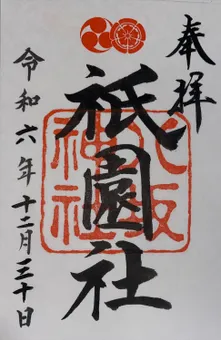 奉拝
祇園社
八坂神社
令和六年十二月三十日